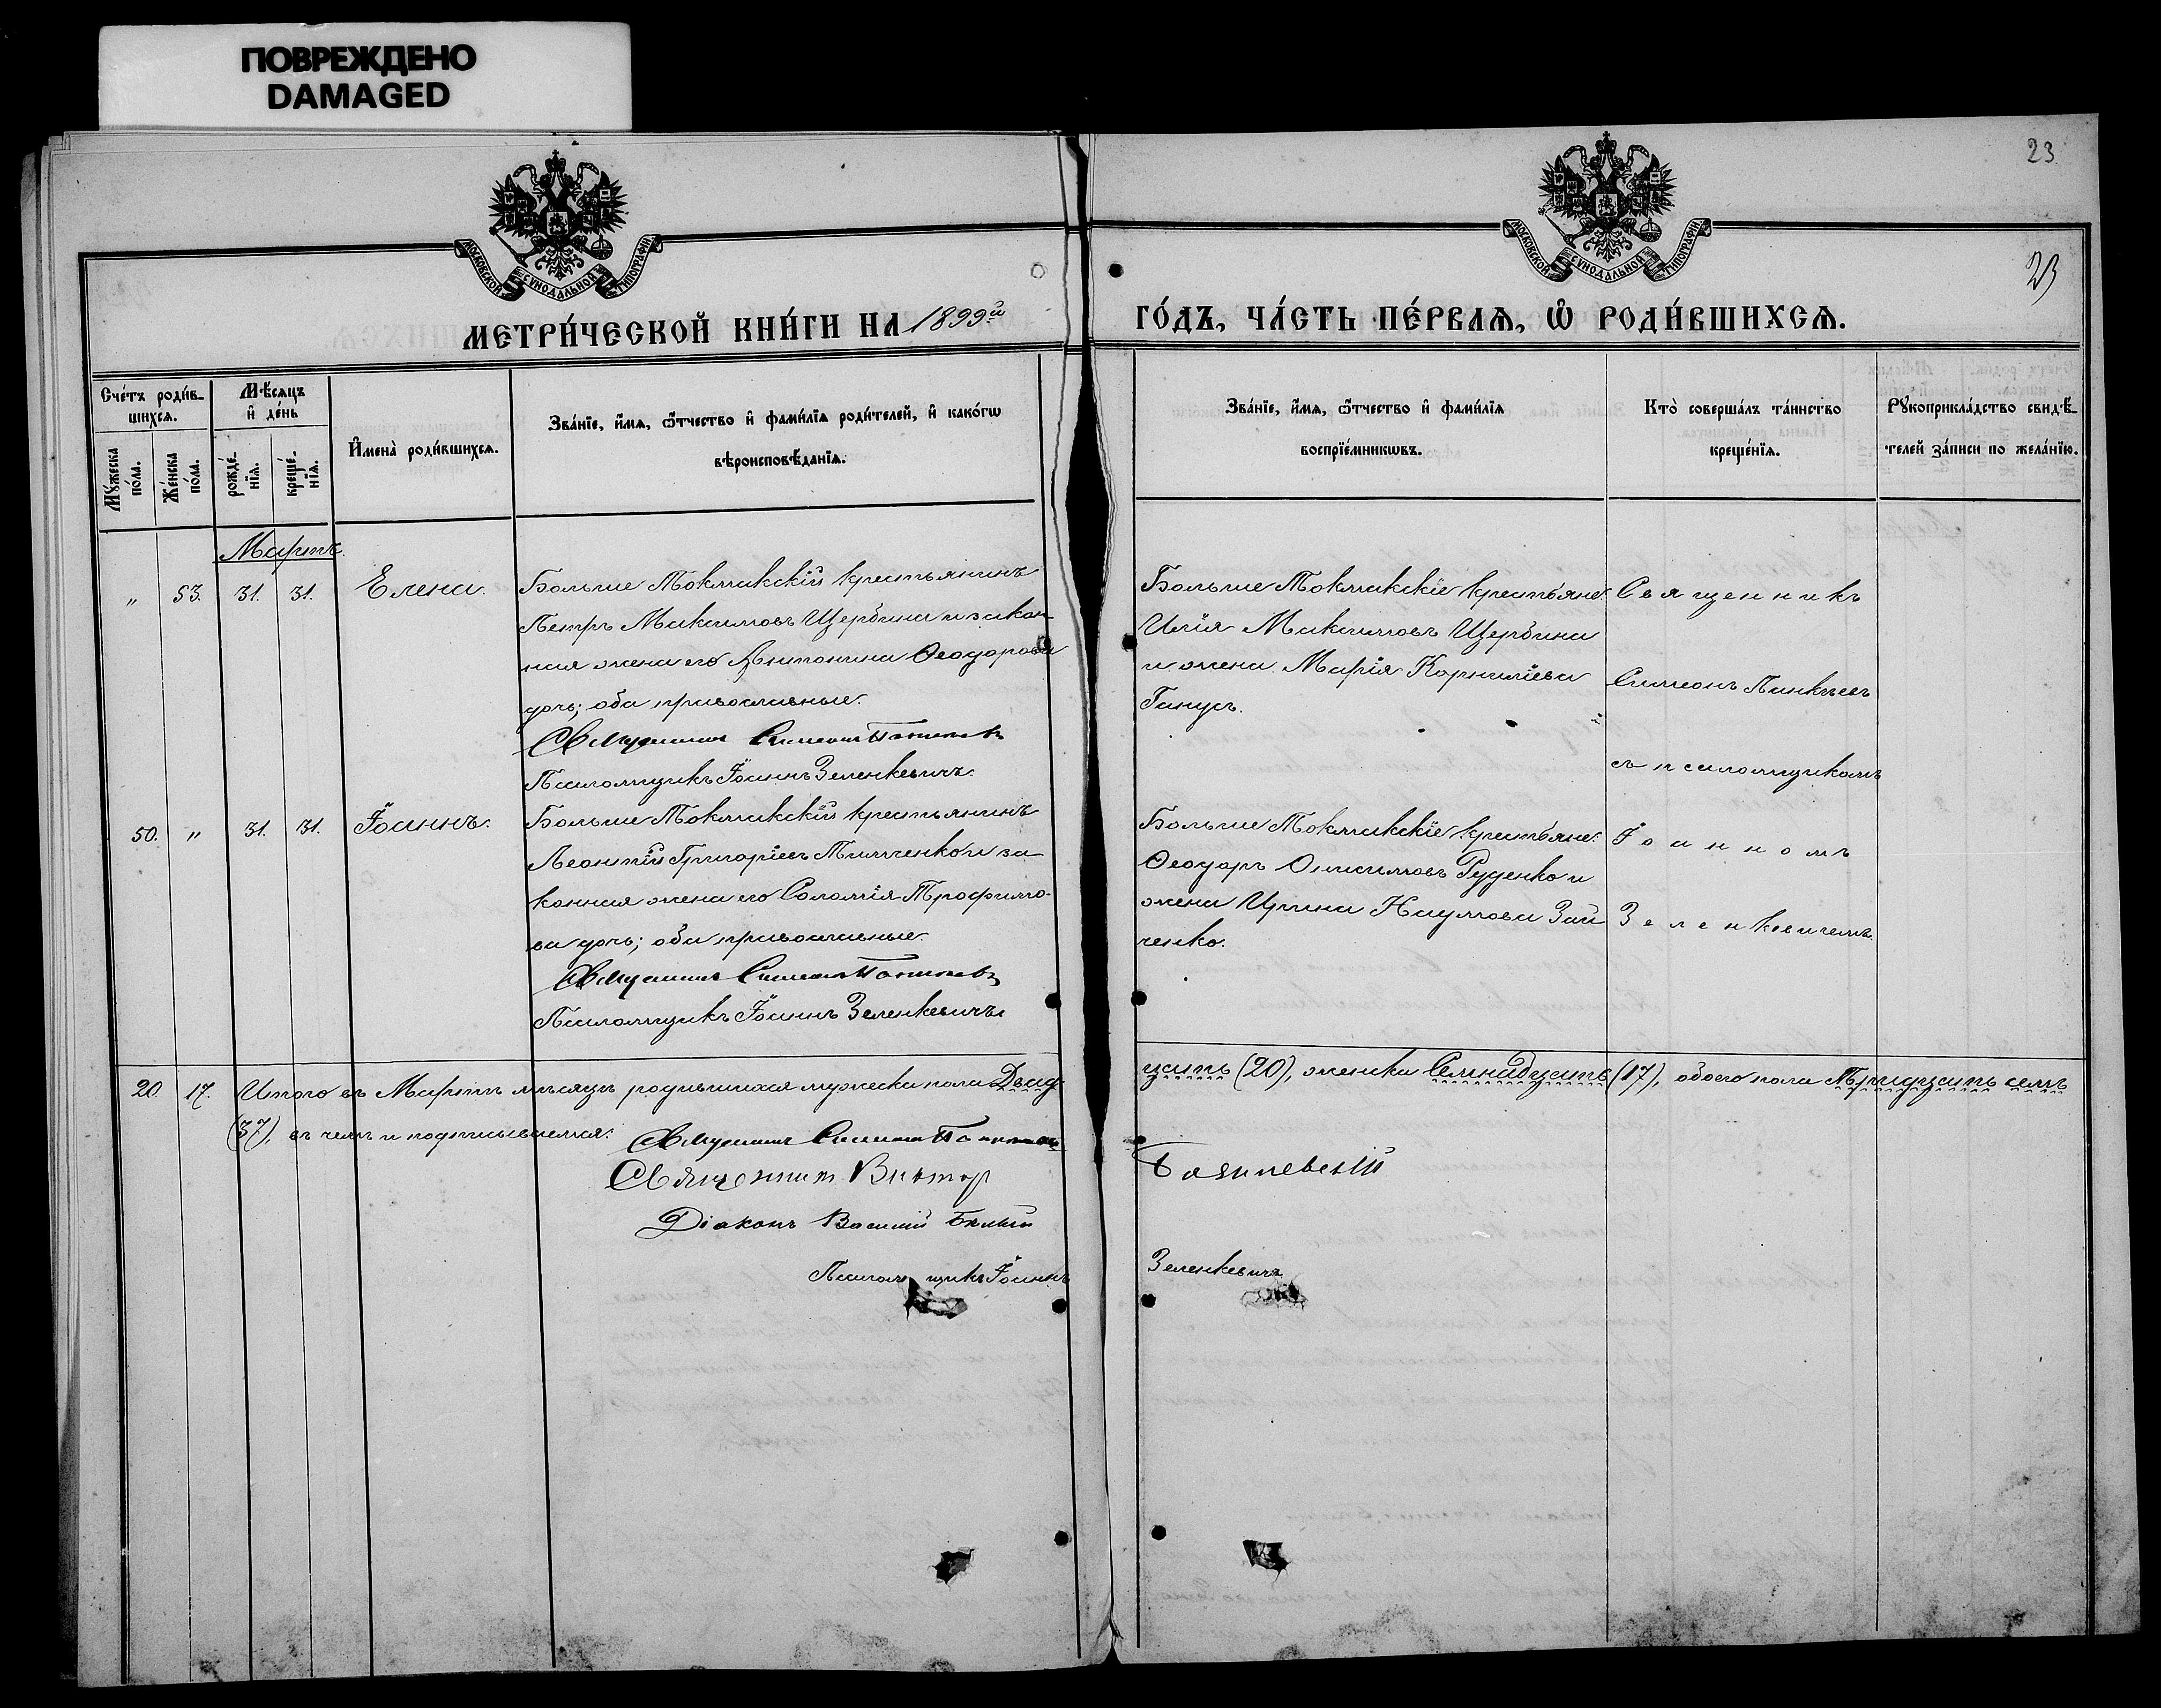 ПОВРЕЖДЕНО
DAMAGED
23
23
МОСКОВСКОЙ СѴНОДАЛЬНОЙ ТИПОГРАФІИ
МОСКОВСКОЙ СѴНОДАЛЬНОЙ ТИПОГРАФІИ
МЕТРИ́ЧЕСКОЙ КНИ́ГИ НА 1899й
ГО́ДЪ, ЧА́СТЬ ПЕ́РВАѦ, Ѡ҆ РОДИ́ВШИХСѦ.
Сче́тъ роди́в-
шихсѧ.
Мꙋ́жеска по́ла.
Же́нска по́ла.
Мѣ́сяцъ
и҆ де́нь
рожде́-нїѧ.
креще́-нїѧ.
И҆мена̀ роди́вшихсѧ.
Зва́нїе, и҆́мѧ, ѻ҆́тчество и҆ фами́лїѧ роди́телей, и҆ како́гѡ
вѣроисповѣ́данїѧ.
Зва́нїе, и҆́мѧ, ѻ҆́тчество и҆ фами́лїѧ
воспрїе́мникѡвъ.
Кто̀ соверша́лъ та́инство
креще́нїѧ.
Рꙋкоприкла́дство свидѣ́-
телей за́писи по жела́нїю.
Мартъ.
„ 53. 31. 31. Елена.
Больше Токмакскій крестьянинъ
Петръ Максимовъ Щербина и закон
ная жена его Антонина Ѳеодорова
дочь; оба православные.
Священникъ Симеонъ Панкѣевъ
Псаломщикъ Іоаннъ Зеленкевичъ.
Больше Токмакскіе крестьяне:
Илія Максимовъ Щербина
и жена Марія Корниліева
Ганусъ.
Священникъ
Симеонъ Панкѣевъ
съ псаломщикомъ
Іоанномъ
Зеленкевичемъ.
50. „ 31. 31. Іоаннъ.
Больше Токмакскій крестьянинъ
Леонтій Григоріевъ Тимченко и за
конная жена его Соломія Трофимо-
ва дочь; оба православные.
Священникъ Симеонъ Панкѣевъ
Псаломщикъ Іоаннъ Зеленкевичъ
Больше Токмакскіе крестьяне:
Ѳеодоръ Онисимовъ Руденко и
жена Ирина Наумова Зай
ченко.
20. 17. Итого въ Мартѣ мѣсяцѣ родившихся мужеска пола Двад-
цать (20), женска Семнадцать (17), обоего пола Тридцать семь
(37), въ чемъ и подписываемся:
Священникъ Симеонъ Панкѣевъ
Священник Виктор Базилевскій
Діаконъ Василій Бѣлый
Псаломщикъ Іоаннъ Зеленкевичъ